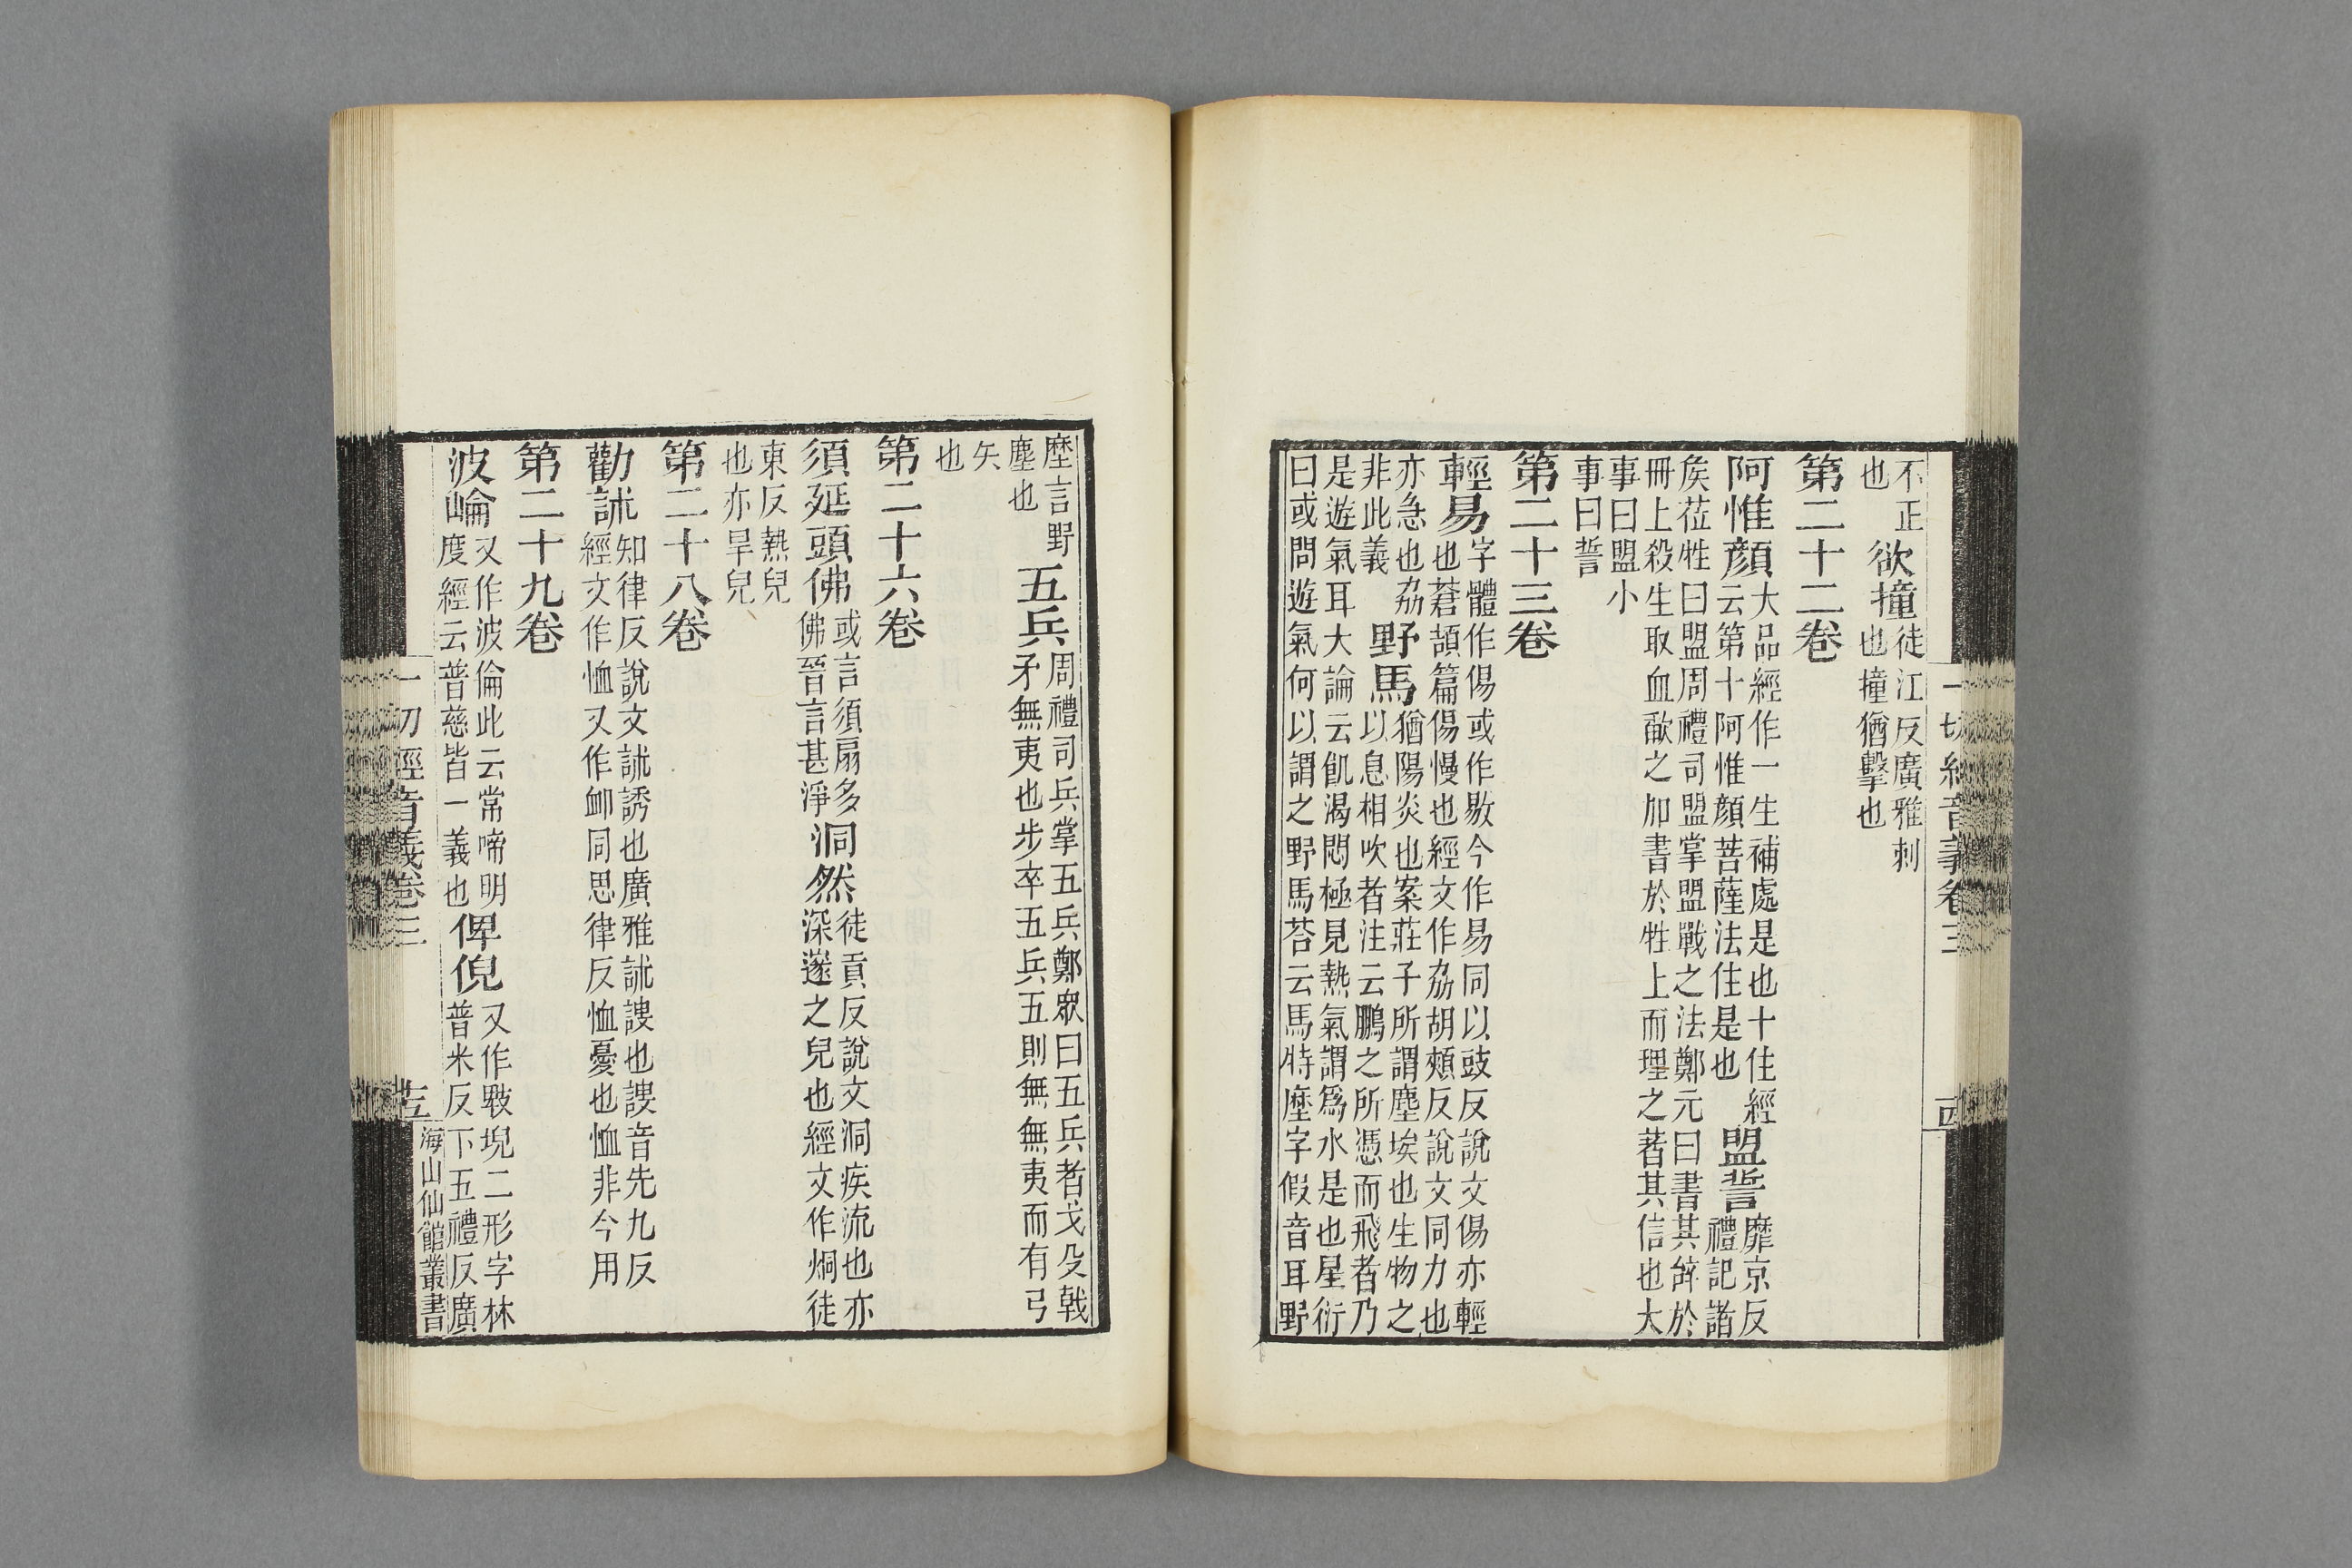 一切經音義卷三
不正欲撞徒江反廣雅刺
也也撞猶擊也
第二十二卷
阿惟顏大品經作一生補處是也十住經盟誓靡京反
云第十阿惟顏菩薩法住是也禮記諸
矦莅牲曰盟周禮司盟掌盟戰之法鄭元曰書其辭於
冊上殺生取血歃之加書於牲上而理之著其信也大
事曰盟小
事曰誓
第二十三卷
輕易字體作傷或作敭今作易同以豉反說文傷亦輕
也蒼頡篇傷慢也經文作劦胡頰反說文同力也
亦急也劦野馬猶陽炎也案莊子所謂塵埃也生物之
非此義以息相吹者注云鵬之所憑而飛者乃
是遊氣耳大論云飢渴悶極見熱氣謂爲水是也星衍
曰或問遊氣何以謂之野馬荅云馬特塺字假音耳野
塺言野五兵周禮司兵掌五兵鄭衆曰五兵者戈殳戟
塵也矛無夷也步卒五兵五則無無夷而有弓
矢
也
第二十六卷
須延頭佛或言須扇多洞然徒貢反說文洞疾流也亦
佛晉言甚淨深邃之皃也經文作烔徒
東反熱皃
也亦旱皃
第二十八卷
勸訹知律反說文訹誘也廣雅訹謏也謏音先九反
經文作恤又作卹同思律反恤憂也恤非今用
第二十九卷
波崘又作波倫此云常啼明俾倪又作㪏堄二形字林
度經云普慈皆一義也普米反下五禮反廣
一切經音義卷三
海山仙館叢書